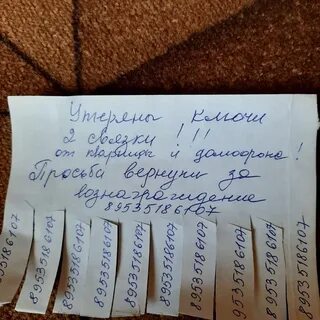 Утеряны ключи
2 связки ! !!
от квартиры и домофона !
Просьба вернуть за
вознаграждение
89535186107
89535186107
89535186107
89535186107
89535186107
89535186107
89535186107
89535186107
89535186107
89535186107